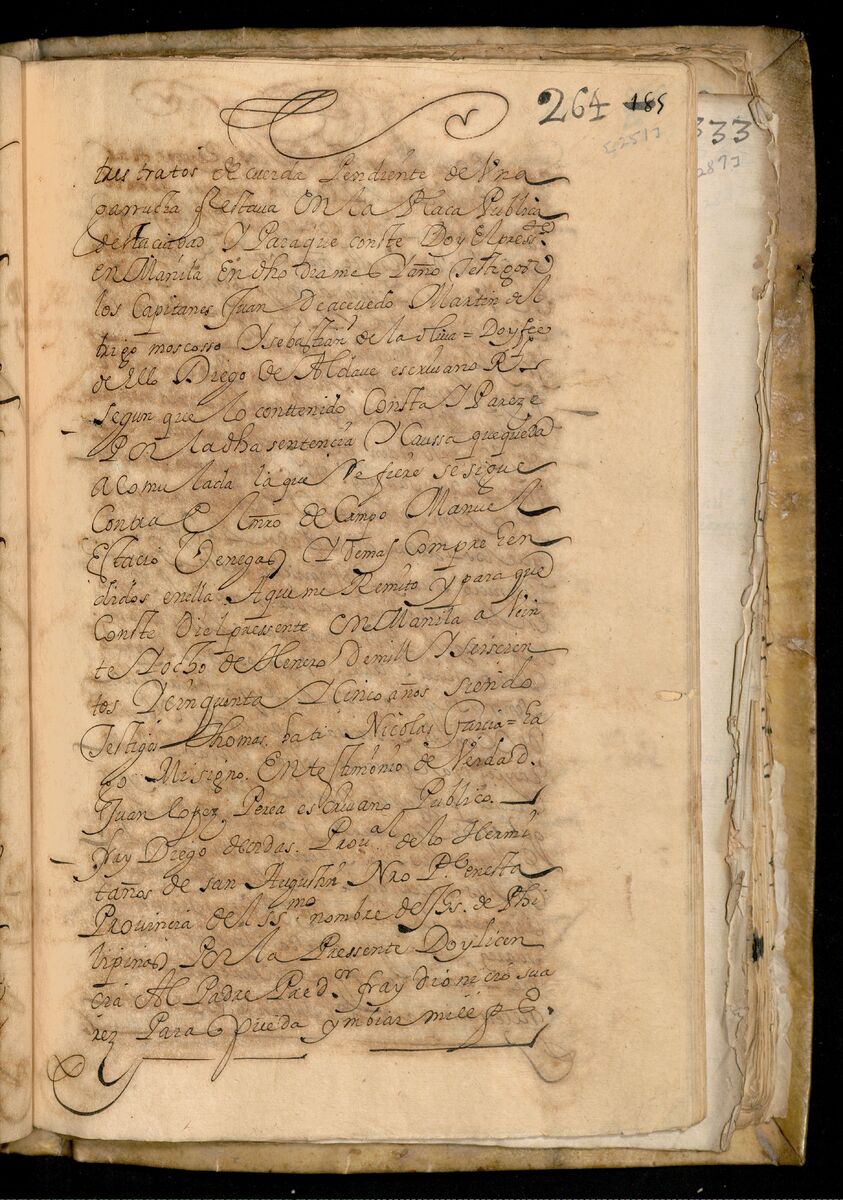 264 185
[251]
333
287]
tres tratos de cuerda Pendiente de Vna
garrucha q̃ estava En la Plaça Publica
desta ciudad Y Paraque conste Doy El press.te
en Manila En dho dia mes Y año Testigos
los Capitanes Juan de acevedo Martin del
trigo moscosso Y sebastian de la = Doy fee
de Ello Diego de Aldave escriuano R.l
segun que lo conttenido Consta Y Pareze
Por la dha sentencia Y Caussa que queda
acomulada la que Refiere se sigue
Contra El Mro de Campo Manuel
Estacio Venegas Y demas Comprehen
didos en ella Aque me Remito y para que
Conste Di el pressente en Manila a Vein
te Y ocho de Henero de mill Y seiscien
tos Cinquenta Y Cinco años siendo
Testigos Thomas bati Nicolas Garcia = ha
go Mi signo. En testimonio de Verdad.
Juan lopez Perea escriuano Publico.
fray Diego de ordas. Prou.al de lo Hermi
taños de san Augustin Nro P.e en esta
Prouincia del SS.mo nombre de Jhs. de Phi
lipinas Por la Pressente Doy licen
cia Al Padre Pred.or fray dionicio sua
rez Para q̃ Pueda ymbiar mill p.s